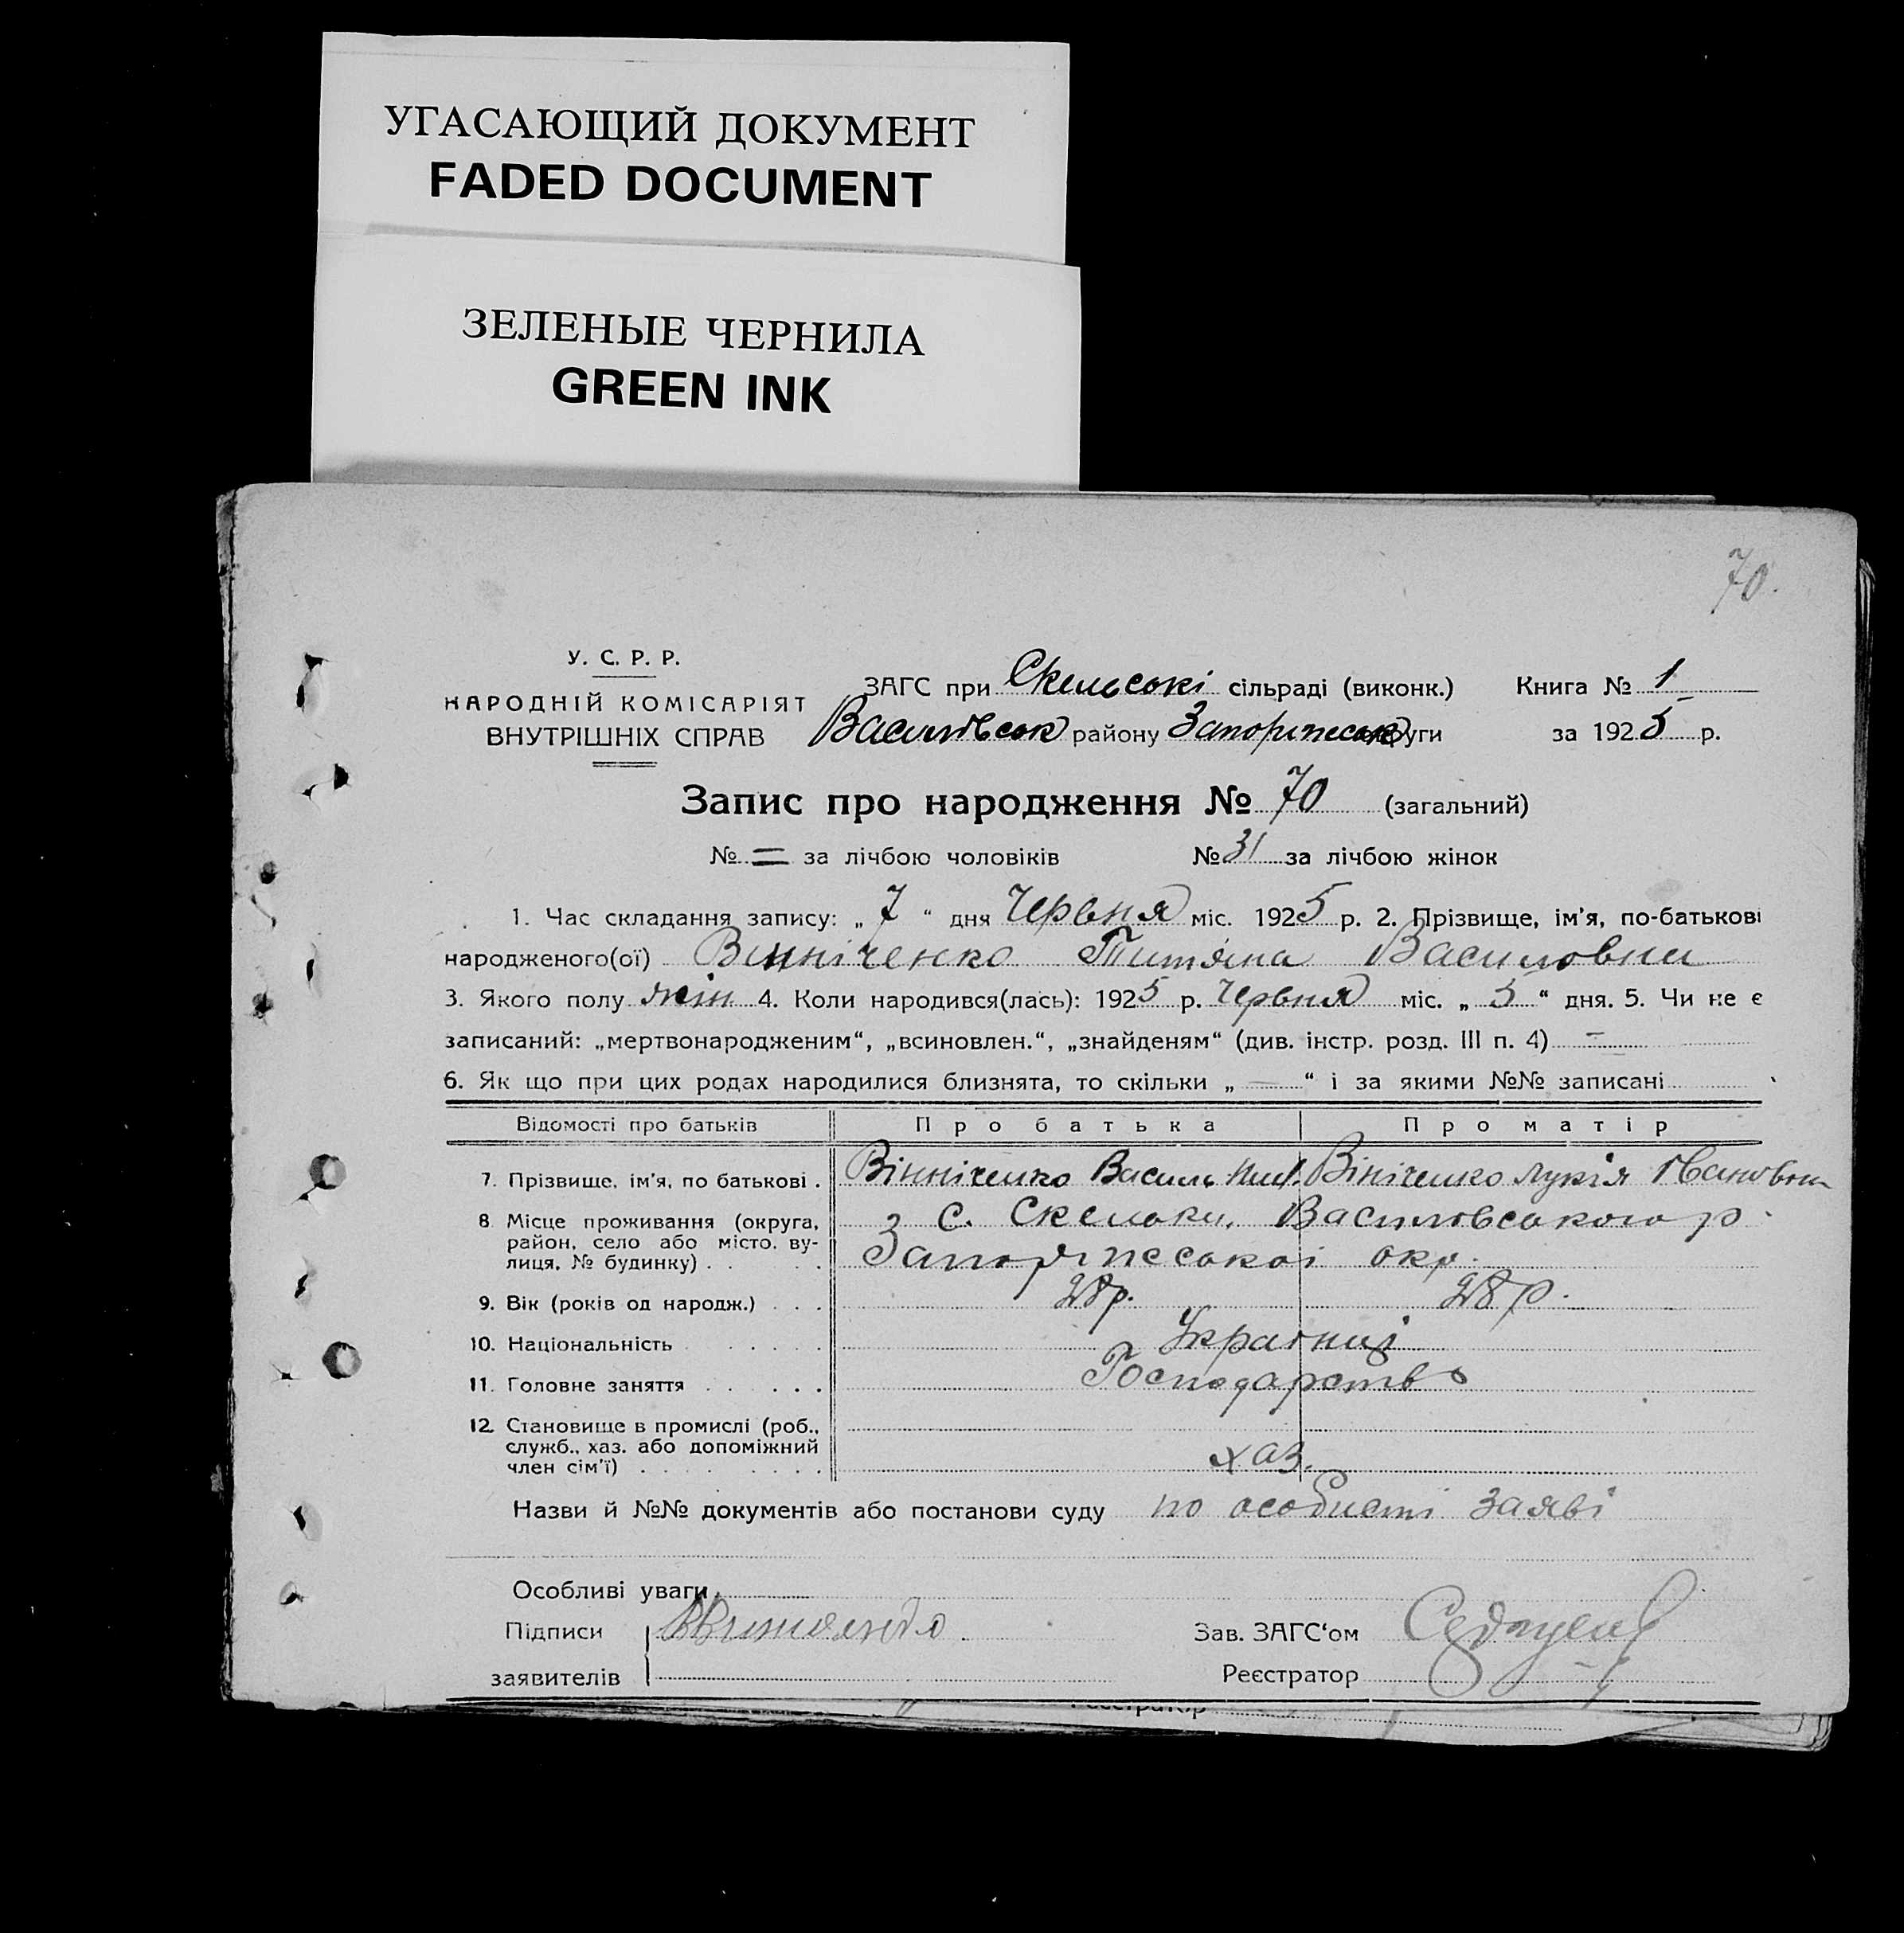 УГАСАЮЩИЙ ДОКУМЕНТ
FADED DOCUMENT
ЗЕЛЕНЫЕ ЧЕРНИЛА
GREEN INK
70.
У. С. Р. Р.
НАРОДНІЙ КОМІСАРІЯТ
ВНУТРІШНІХ СПРАВ
ЗАГС при Скельські сільраді (виконк.) Книга № 1
Василівськ району Запоріжськ округи за 1925 р.
Запис про народження № 70 (загальний)
№ = за лічбою чоловіків № 31 за лічбою жінок
1. Час складання запису: „ 7 “ дня Червня міс. 1925 р. 2. Прізвище, ім'я, по-батькові
народженого(ої) Вінніченко Титяна Василовни
3. Якого полу жін 4. Коли народився(лась): 1925 р. Червня міс. „ 5 “ дня. 5. Чи не є
записаний: „мертвонародженим“, „всиновлен.“, „знайденям“ (див. інстр. розд. III п. 4) —
6. Як що при цих родах народилися близнята, то скільки „ — “ і за якими №№ записані
Відомості про батьків Про батька Про матір
7. Прізвище, ім'я, по батькові . Вінніченко Василь Вініченко Лукія Івановна
8 Місце проживання (округа, район, село або місто, вулиця, № будинку) . . . . з с. Скельки, Василовського р.
Запоріжської окр.
9. Вік (років од народж.) . . . 28р. 28 р.
10. Національність . . . . . . Украінці
11. Головне заняття . . . . . . Господарство
12. Становище в промислі (роб., служб., хаз. або допоміжний член сім'ї) . . . . . . . . хаз.
Назви й №№ документів або постанови суду по особисті заяві
Особливі уваги
Підписи
заявителів
Зав. ЗАГС‘ом
Реєстратор
Реєстратор